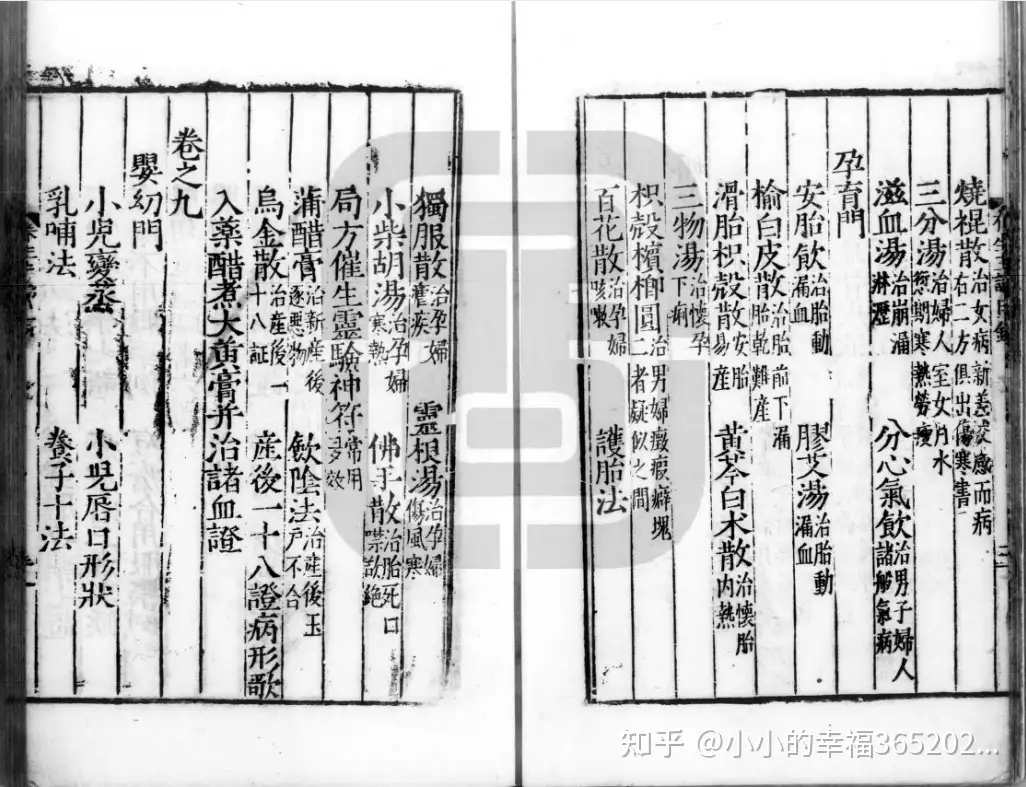 燒裩散治女病新差後感而病右二方俱出傷寒書
三分湯治婦人室女月水愆期寒熱勞瘦
滋血湯治崩漏淋瀝 分心氣飲治男子婦人諸般氣病
孕育門
安胎飲治胎動漏血 膠艾湯治胎動漏血
榆白皮散治胎前下漏胎乾難產
滑胎枳殼散安胎易產 黃芩白朮散治懷胎內熱
三物湯治懷孕下痢
枳殼檳榔圓治男婦癥瘕癖塊二者疑似之間
百花散治孕婦咳嗽 護胎法
獨服散治孕婦 靈根湯治孕婦傷風寒
小柴胡湯治孕婦寒熱 佛手散治胎死口噤欲絕
局方催生靈驗神符常用多效
蒲醋膏治新産後逐惡物 飲陰法治産後玉戶不合
烏金散治産後一十八証 産後一十八證病形歌
入藥醋煮大黃膏并治諸血證
卷之九
嬰幼門
小兒變蒸 小兒唇口形狀
乳哺法 養子十法
知乎 @小小的幸福365202...